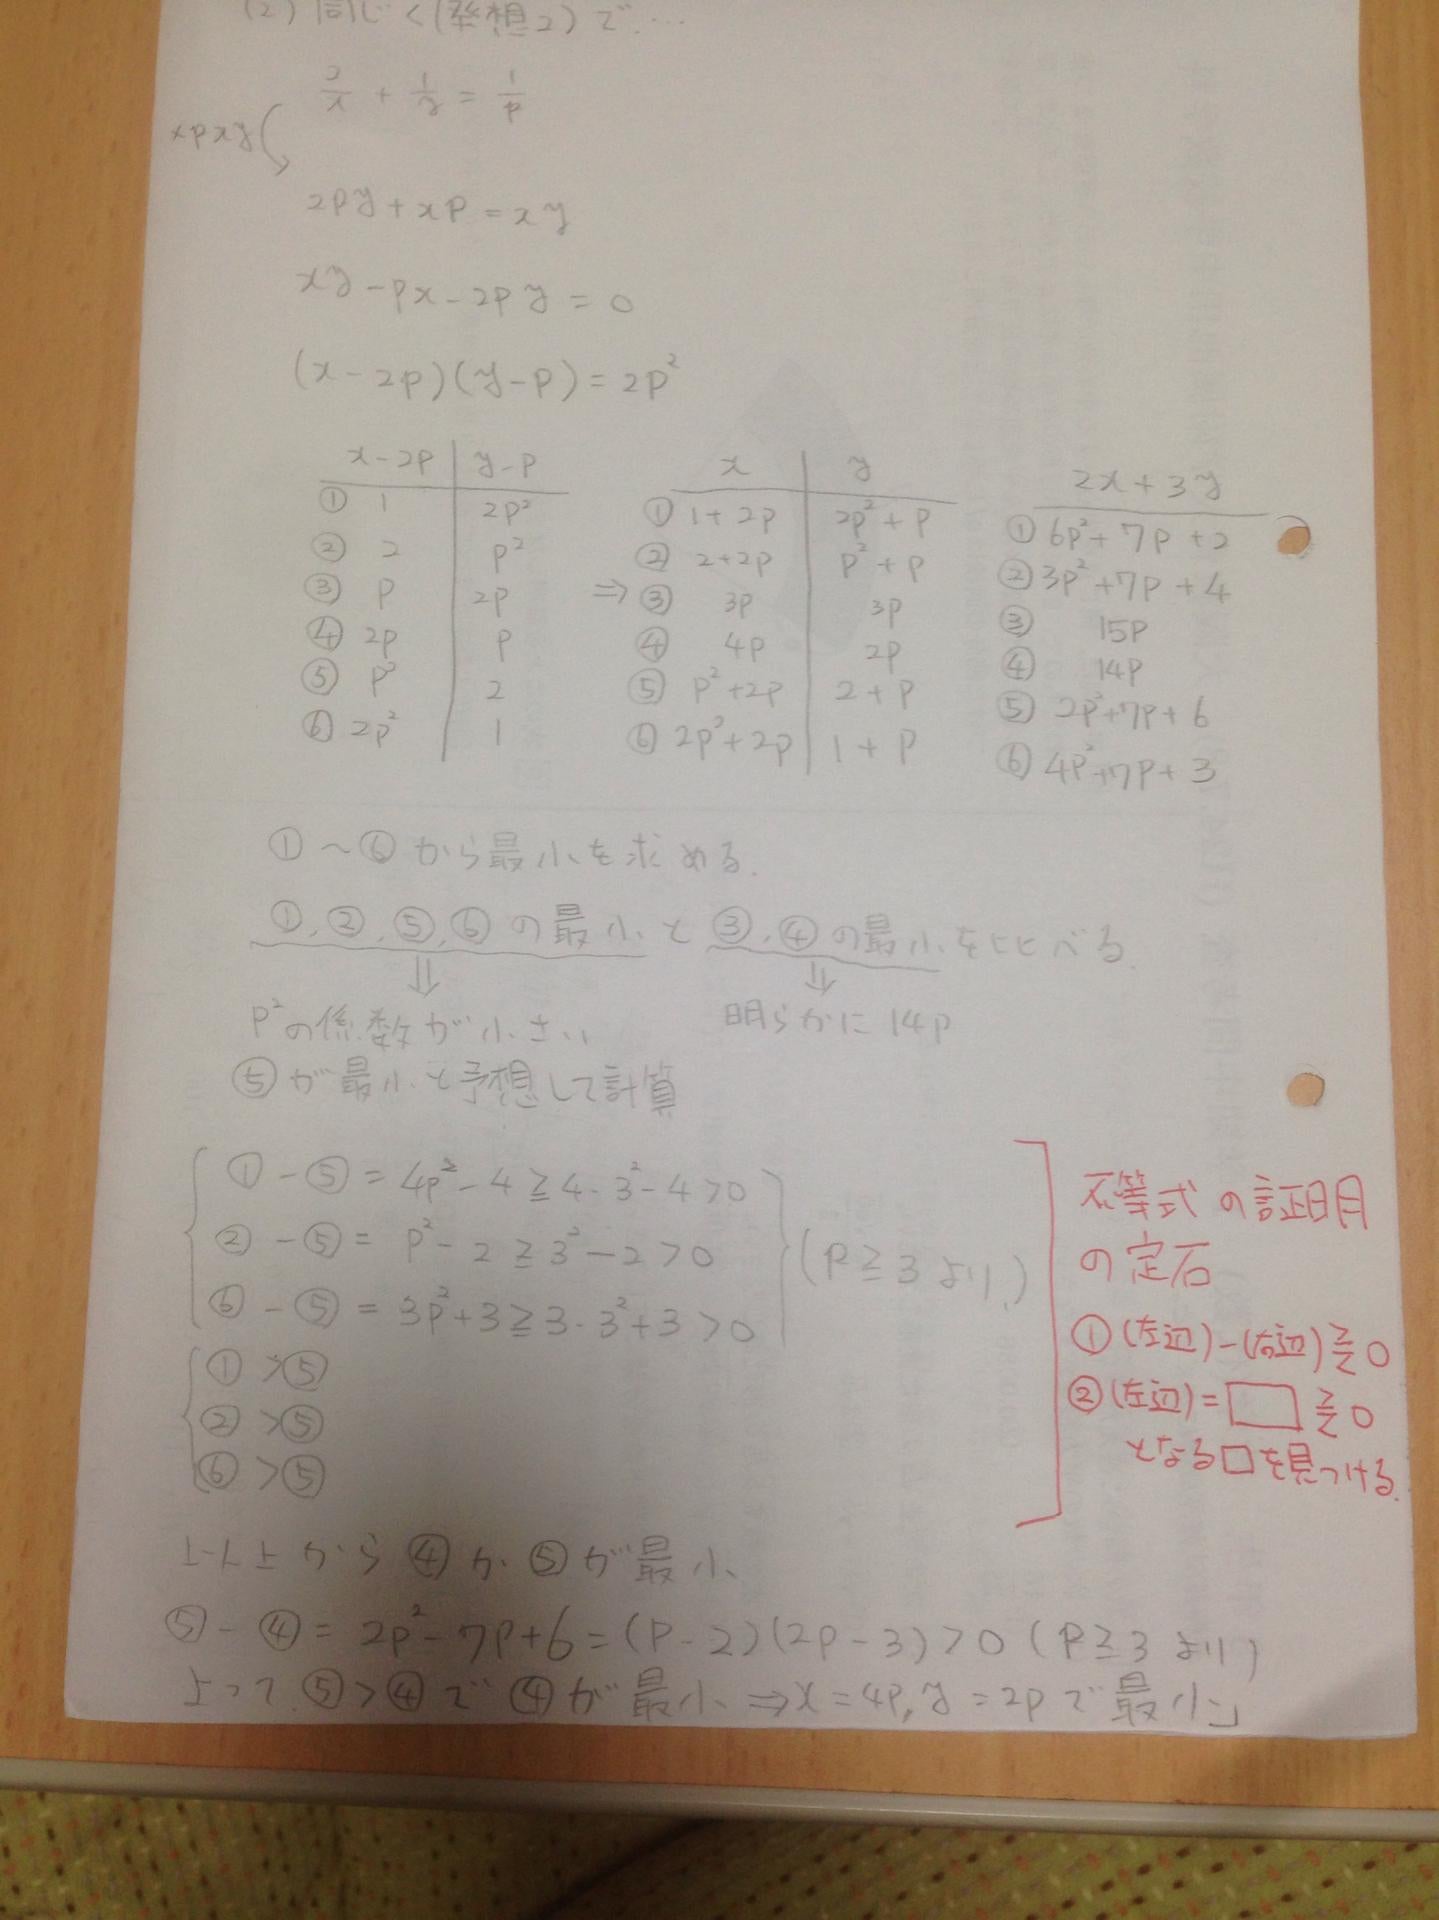 (2) 同じく(発想2)で…
2/x + 1/y = 1/p
×pxy
2py+xp=xy
xy-px-2py=0
(x-2p)(y-p)=2p²
x-2p | y-p
① 1 | 2p²
② 2 | p²
③ p | 2p
④ 2p | p
⑤ p² | 2
⑥ 2p² | 1
⇒
x | y
① 1+2p | 2p²+p
② 2+2p | p²+p
③ 3p | 3p
④ 4p | 2p
⑤ p²+2p | 2+p
⑥ 2p²+2p | 1+p
2x+3y
① 6p²+7p+2
② 3p²+7p+4
③ 15p
④ 14p
⑤ 2p²+7p+6
⑥ 4p²+7p+3
①~⑥から最小を求める.
①,②,⑤,⑥の最小と③,④の最小を比べる.
⇓ ⇓
p²の係数が小さい 明らかに14p
⑤が最小と予想して計算
①-⑤=4p²-4≧4・3²-4>0
②-⑤=p²-2≧3²-2>0
⑥-⑤=3p²+3≧3・3²+3>0
(p≧3より)
①>⑤
②>⑤
⑥>⑤
不等式の証明
の定石
①(左辺)-(右辺)≧0
②(左辺)=□≧0
となる□を見つける.
から④か⑤が最小
⑤-④=2p²-7p+6=(p-2)(2p-3)>0(p≧3より)
よって⑤>④で④が最小⇒x=4p,y=2pで最小」